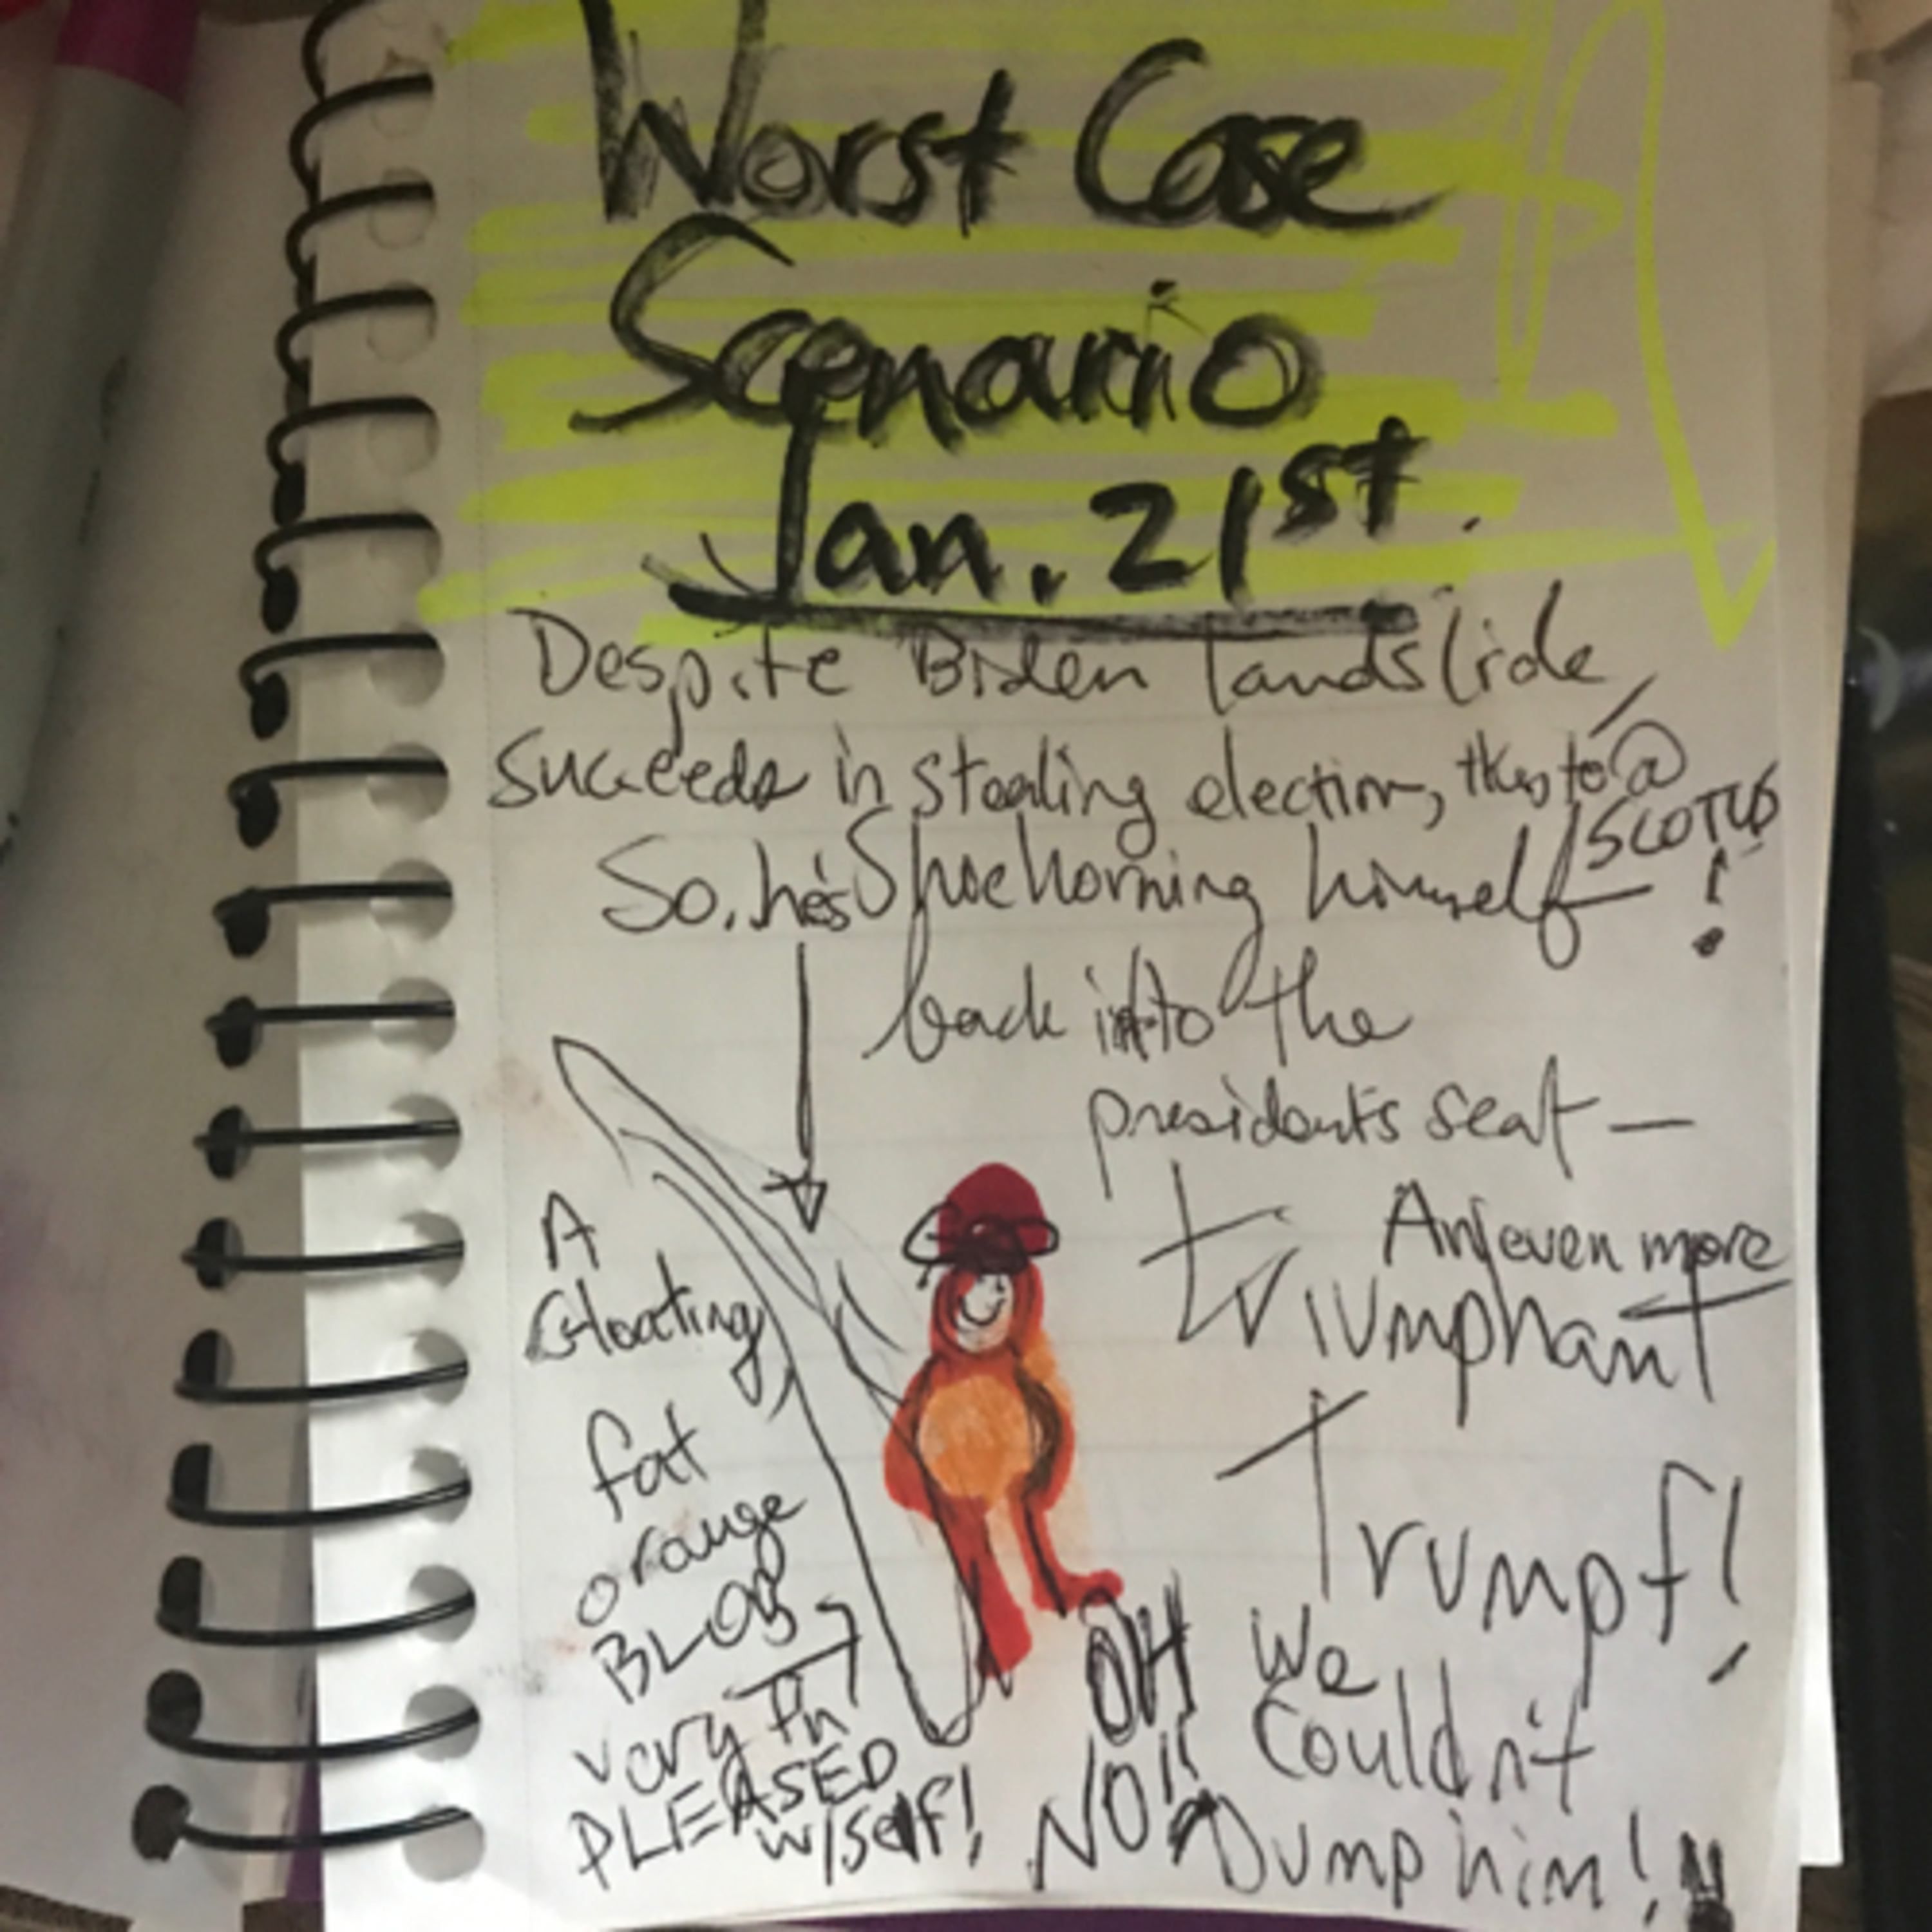 Worst Case
Scenario
Jan. 21st.
Despite Biden landslide,
succeeds in stealing election, thks to @
SCOTUS!
So. he's Shoehorning himself
back into the
president's seat —
An even more
triumphant
Trumpf!
A
Gloating
fat
orange
BLOB
very
PLEASED
w/self!
OH
NO!!
We
Couldn't
Dump him!!!